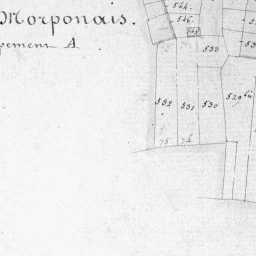 Morponais.
pement A
544.
546.
533
532
531
530
529 bis
75
74